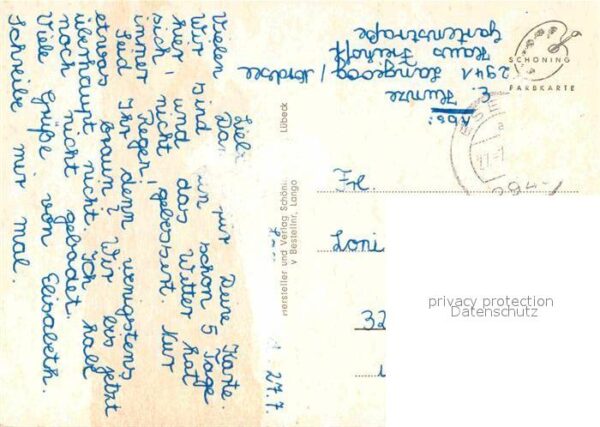 SCHÖNING
FARBKARTE
Abs:
E. Kunze
2941 Langeoog / Nordsee
Haus Freiholt
Gartenstraße
27.7
Vielen für Deine Karte.
Wir sind schon 5 Tage
hier, und das Wetter hat
sich nicht gebessert. Nur
immer Regen!
Seid Ihr denn wenigstens
etwas braun? Wir bis jetzt
überhaupt nicht. Ich hab
noch nicht gebadet.
Viele Grüße von Elisabeth.
Schreibe mir mal.
Hersteller und Verlag Schöni Lübeck
Bestellnr. Lango
Frl.
Loni
32
privacy protection
Datenschutz